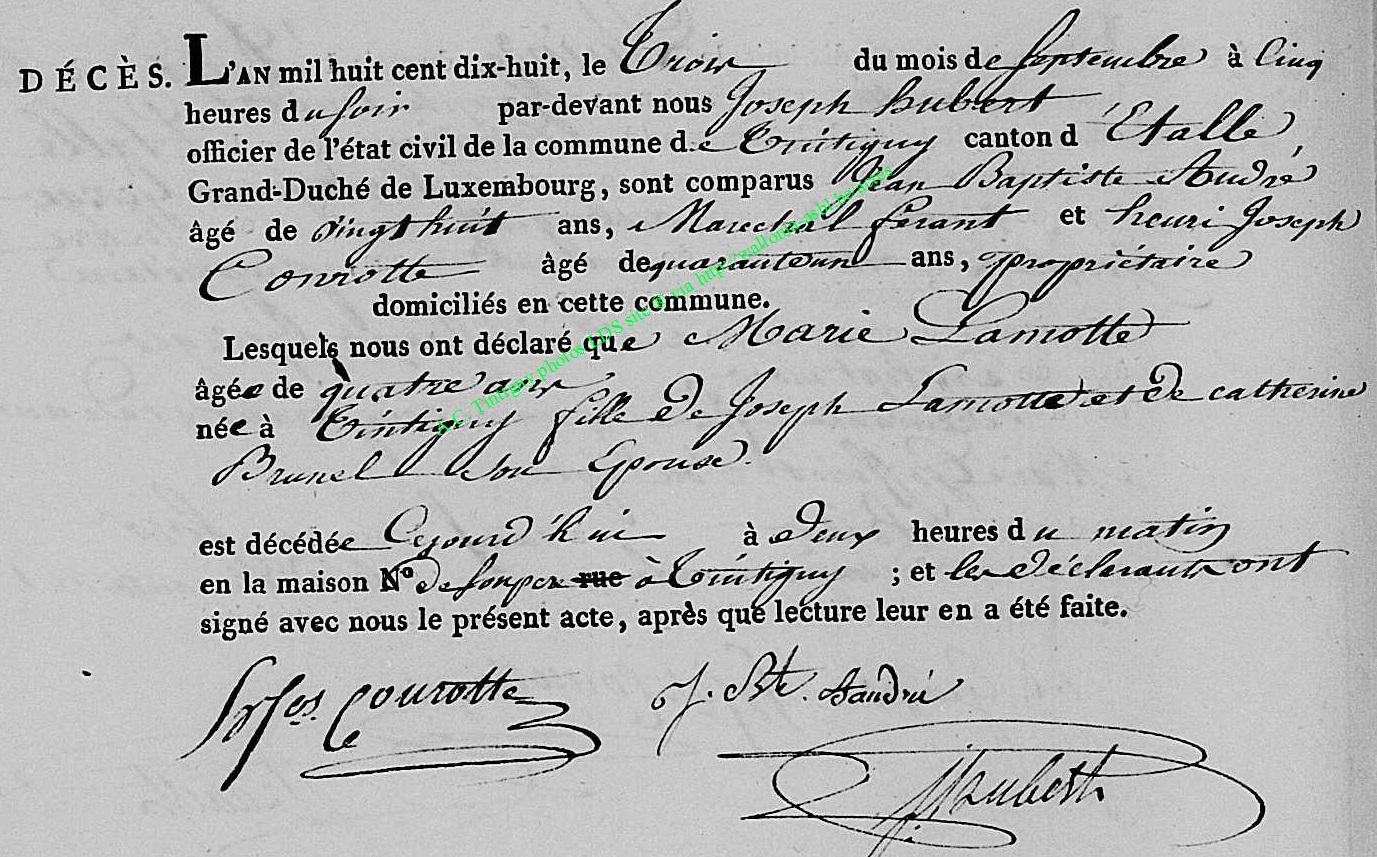 DÉCÈS. L'AN mil huit cent dix-huit, le Trois du mois de Septembre à Cinq
heures du soir par-devant nous Joseph hubert
officier de l'état civil de la commune de Tintigny canton d'Etalle,
Grand-Duché de Luxembourg, sont comparus Jean Baptiste André
âgé de vingt huit ans, Marechal ferant et henri Joseph
Courotte âgé de quarante un ans, propriétaire
domiciliés en cette commune.
Lesquels nous ont déclaré que Marie Lamotte
âgée de quatre ans
née à Tintigny fille de Joseph Lamotte et de catherine
Brunel son Epouse.
est décédée Cejourd'hui à Deux heures du matin
en la maison N° de son pere rue à Tintigny ; et les déclarants ont
signé avec nous le présent acte, après que lecture leur en a été faite.
Courotte J. Bte. Andrié
JHubert
A.C. Tintigny photos LDS site Luxia http://walloniaasbl.be